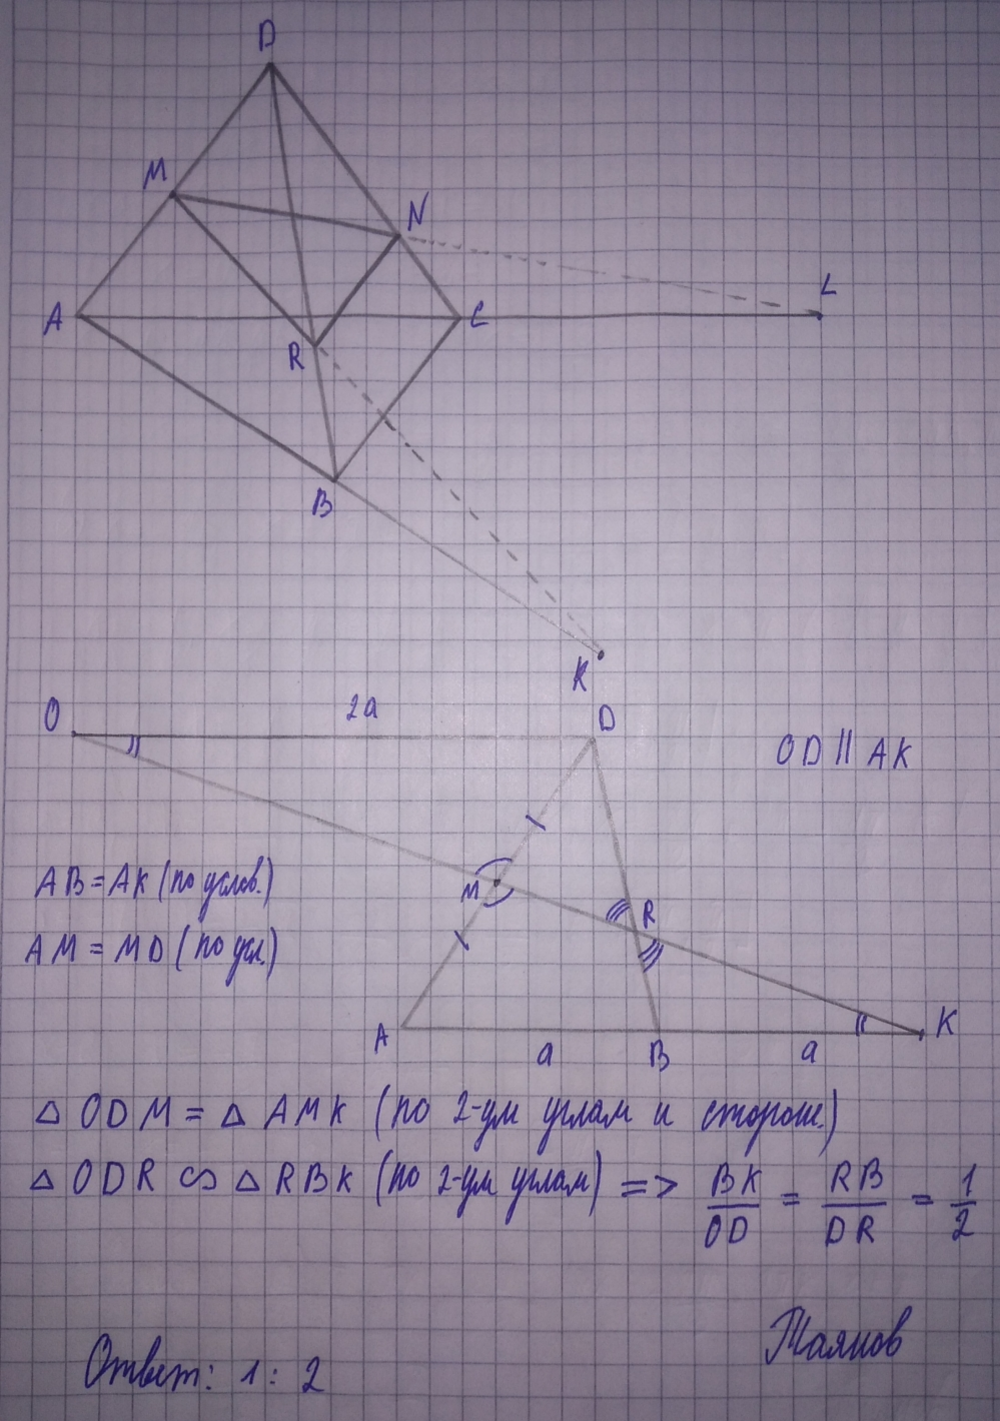 D
M
N
A
C
L
R
B
K
O
2a
D
OD || AK
AB = AK (по услов.)
M
R
AM = MD (по усл.)
A
a
B
a
K
△ ODM = △ AMK (по 2-ум углам и сторон.)
△ ODR ∽ △ RBK (по 2-ум углам) => BK/OD = RB/DR = 1/2
Ответ: 1 : 2
Таянов